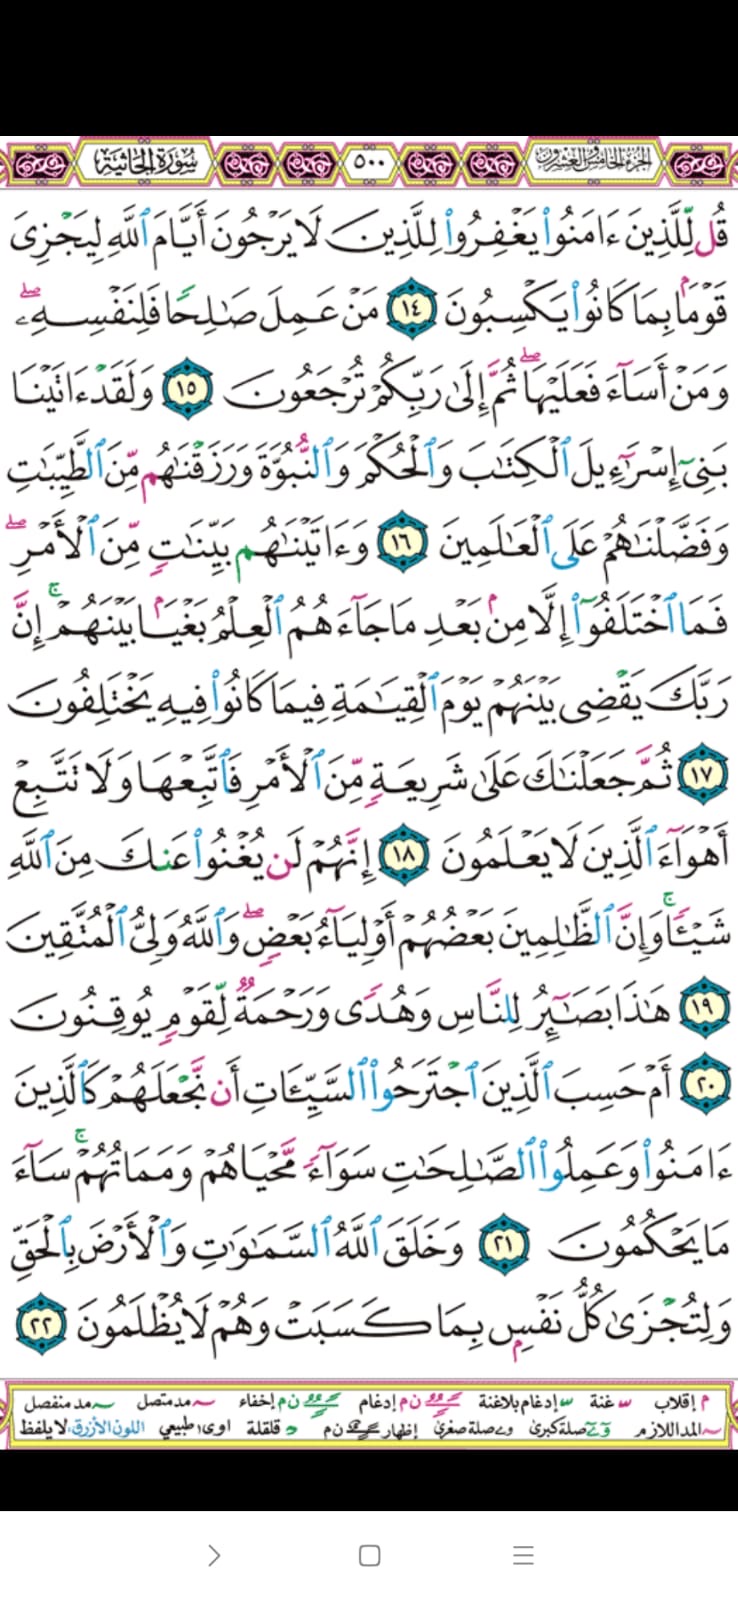 سُورَةُ الجَاثِيَةِ ٥٠٠ الجزء الخامس والعشرون
قُل لِّلَّذِينَ ءَامَنُوا۟ يَغْفِرُوا۟ لِلَّذِينَ لَا يَرْجُونَ أَيَّامَ ٱللَّهِ لِيَجْزِىَ
قَوْمًۢا بِمَا كَانُوا۟ يَكْسِبُونَ ١٤ مَنْ عَمِلَ صَـٰلِحًا فَلِنَفْسِهِۦ ۖ
وَمَنْ أَسَآءَ فَعَلَيْهَا ۖ ثُمَّ إِلَىٰ رَبِّكُمْ تُرْجَعُونَ ١٥ وَلَقَدْ ءَاتَيْنَا
بَنِىٓ إِسْرَٰٓءِيلَ ٱلْكِتَـٰبَ وَٱلْحُكْمَ وَٱلنُّبُوَّةَ وَرَزَقْنَـٰهُم مِّنَ ٱلطَّيِّبَـٰتِ
وَفَضَّلْنَـٰهُمْ عَلَى ٱلْعَـٰلَمِينَ ١٦ وَءَاتَيْنَـٰهُم بَيِّنَـٰتٍ مِّنَ ٱلْأَمْرِ ۖ
فَمَا ٱخْتَلَفُوٓا۟ إِلَّا مِنۢ بَعْدِ مَا جَآءَهُمُ ٱلْعِلْمُ بَغْيًۢا بَيْنَهُمْ ۚ إِنَّ
رَبَّكَ يَقْضِى بَيْنَهُمْ يَوْمَ ٱلْقِيَـٰمَةِ فِيمَا كَانُوا۟ فِيهِ يَخْتَلِفُونَ
١٧ ثُمَّ جَعَلْنَـٰكَ عَلَىٰ شَرِيعَةٍ مِّنَ ٱلْأَمْرِ فَٱتَّبِعْهَا وَلَا تَتَّبِعْ
أَهْوَآءَ ٱلَّذِينَ لَا يَعْلَمُونَ ١٨ إِنَّهُمْ لَن يُغْنُوا۟ عَنكَ مِنَ ٱللَّهِ
شَيْـًٔا ۚ وَإِنَّ ٱلظَّـٰلِمِينَ بَعْضُهُمْ أَوْلِيَآءُ بَعْضٍ ۖ وَٱللَّهُ وَلِىُّ ٱلْمُتَّقِينَ
١٩ هَـٰذَا بَصَـٰٓئِرُ لِلنَّاسِ وَهُدًى وَرَحْمَةٌ لِّقَوْمٍ يُوقِنُونَ
٢٠ أَمْ حَسِبَ ٱلَّذِينَ ٱجْتَرَحُوا۟ ٱلسَّيِّـَٔاتِ أَن نَّجْعَلَهُمْ كَٱلَّذِينَ
ءَامَنُوا۟ وَعَمِلُوا۟ ٱلصَّـٰلِحَـٰتِ سَوَآءً مَّحْيَاهُمْ وَمَمَاتُهُمْ ۚ سَآءَ
مَا يَحْكُمُونَ ٢١ وَخَلَقَ ٱللَّهُ ٱلسَّمَـٰوَٰتِ وَٱلْأَرْضَ بِٱلْحَقِّ
وَلِتُجْزَىٰ كُلُّ نَفْسٍۭ بِمَا كَسَبَتْ وَهُمْ لَا يُظْلَمُونَ ٢٢
م إقلاب غنة إدغام بلاغنة ن م إدغام ن م إخفاء مد متصل مد منفصل
المد اللازم صلة كبرى صلة صغرى إظهار ن م قلقلة اوى طبيعي اللون الأزرق: لا يلفظ